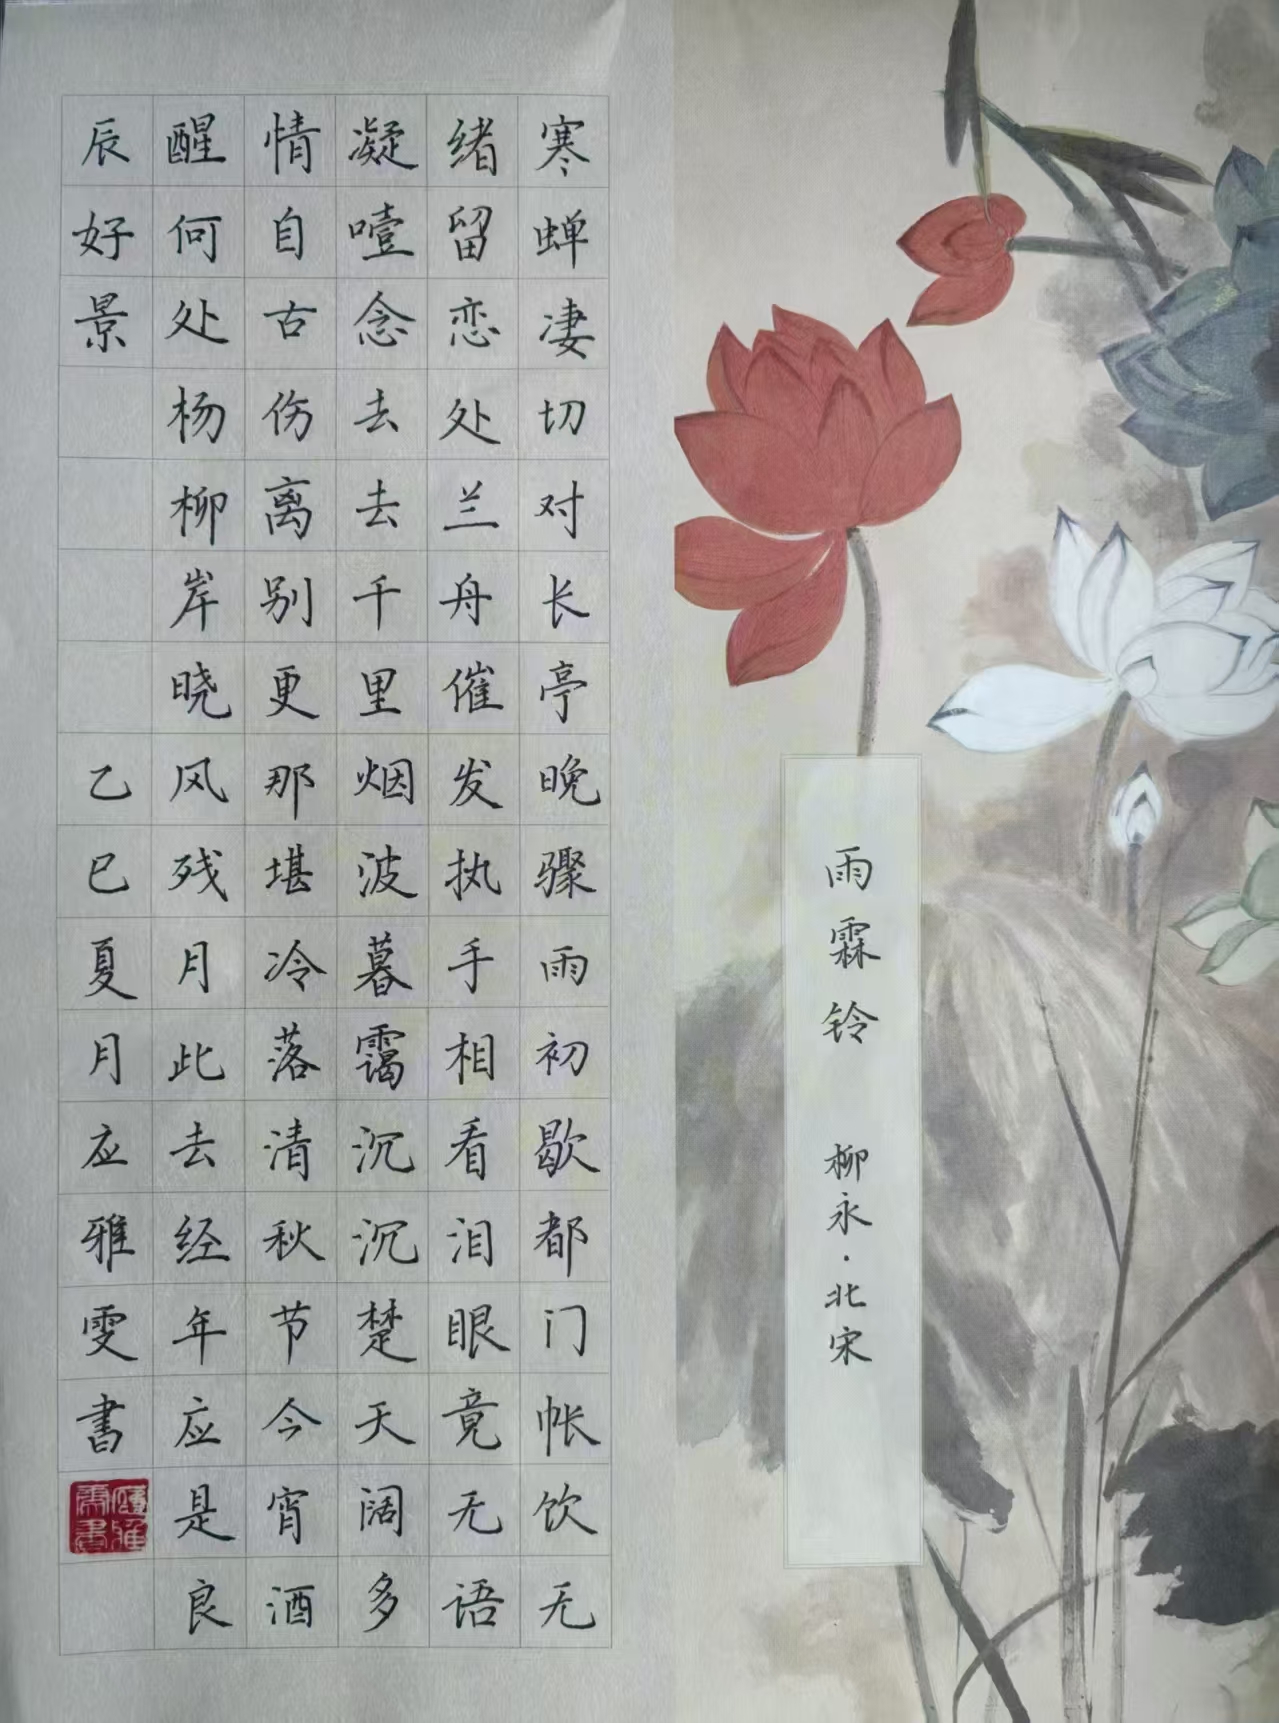 雨霖铃 柳永·北宋
寒蝉凄切对长亭晚骤雨初歇都门帐饮无
绪留恋处兰舟催发执手相看泪眼竟无语
凝噎念去去千里烟波暮霭沉沉楚天阔多
情自古伤离别更那堪冷落清秋节今宵酒
醒何处杨柳岸晓风残月此去经年应是良
辰好景 乙巳夏月应雅雯書